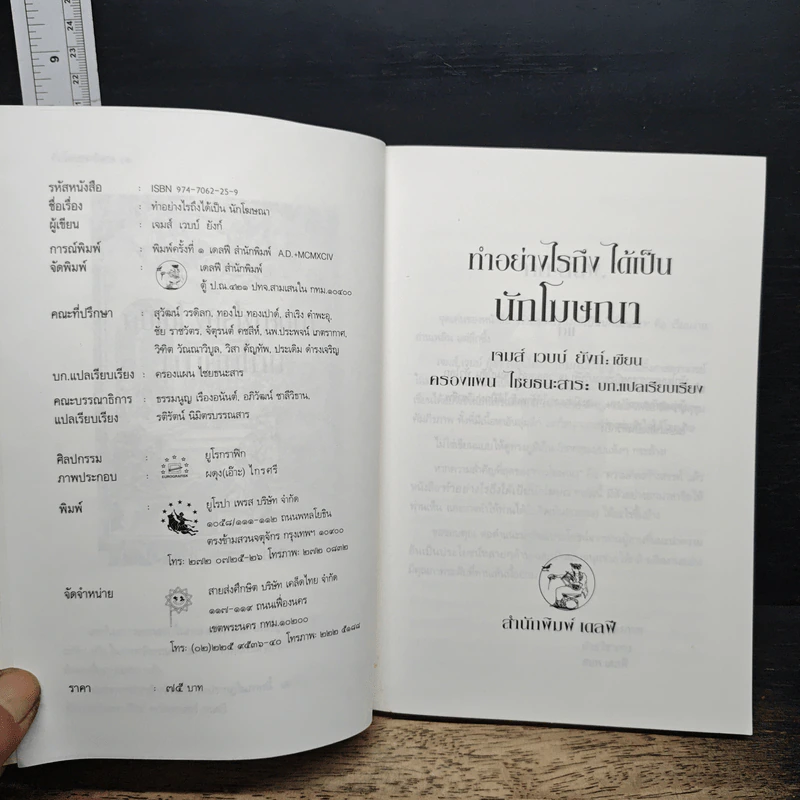 9
24
23
22
รหัสหนังสือ : ISBN 974-7062-23-9
ชื่อเรื่อง : ทำอย่างไรถึงได้เป็น นักโฆษณา
ผู้เขียน : เจมส์ เวบบ์ ยังก์
การณ์พิมพ์ : พิมพ์ครั้งที่ ๑ เดลฟี สำนักพิมพ์ A.D.+MCMXCIV
จัดพิมพ์ : เดลฟี สำนักพิมพ์
ตู้ ป.ณ.๔๒๑ ปทจ.สามเสนใน กทม.๑๐๔๐๐
คณะที่ปรึกษา : สุวัฒน์ วรดิลก, ทองใบ ทองเปาด์, สำเริง คำพะอุ,
ชัย ราชวัตร, จัตุรนต์ คชสีห์, นพ.ประพจน์ เภตรากาศ,
วิฑิต วัณณาวิบูล, วิสา คัญทัพ, ประเดิม ดำรงเจริญ
บก.แปลเรียบเรียง : ครองแผน ไชยธนะสาร
คณะบรรณาธิการ : ธรรมนูญ เรืองอนันต์, อภิวัฒน์ ชาลีวิธาน,
แปลเรียบเรียง รติรัตน์ นิมิตรบรรณสาร
ศิลปกรรม : ยูโรกราฟิก
ภาพประกอบ : ผดุง(เอ๊าะ) ไกรศรี
พิมพ์ : ยูโรปา เพรส บริษัท จำกัด
๑๐๕๘/๑๑๑-๑๑๒ ถนนพหลโยธิน
ตรงข้ามสวนจตุจักร กรุงเทพฯ ๑๐๙๐๐
โทร: ๒๗๒ ๐๗๒๕-๒๖ โทรภาพ: ๒๗๒ ๐๘๓๒
จัดจำหน่าย : สายส่งศึกษิต บริษัท เคล็ดไทย จำกัด
๑๑๗-๑๑๙ ถนนเฟื่องนคร
เขตพระนคร กทม.๑๐๒๐๐
โทร: (๐๒)๒๒๕ ๙๕๓๖-๔๐ โทรภาพ: ๒๒๒ ๕๑๘๘
ราคา : ๗๕ บาท
ทำอย่างไรถึง ได้เป็น
นักโฆษณา
เจมส์ เวบบ์ ยังก์: เขียน
ครองแผน ไชยธนะสาร: บก.แปลเรียบเรียง
สำนักพิมพ์ เดลฟี